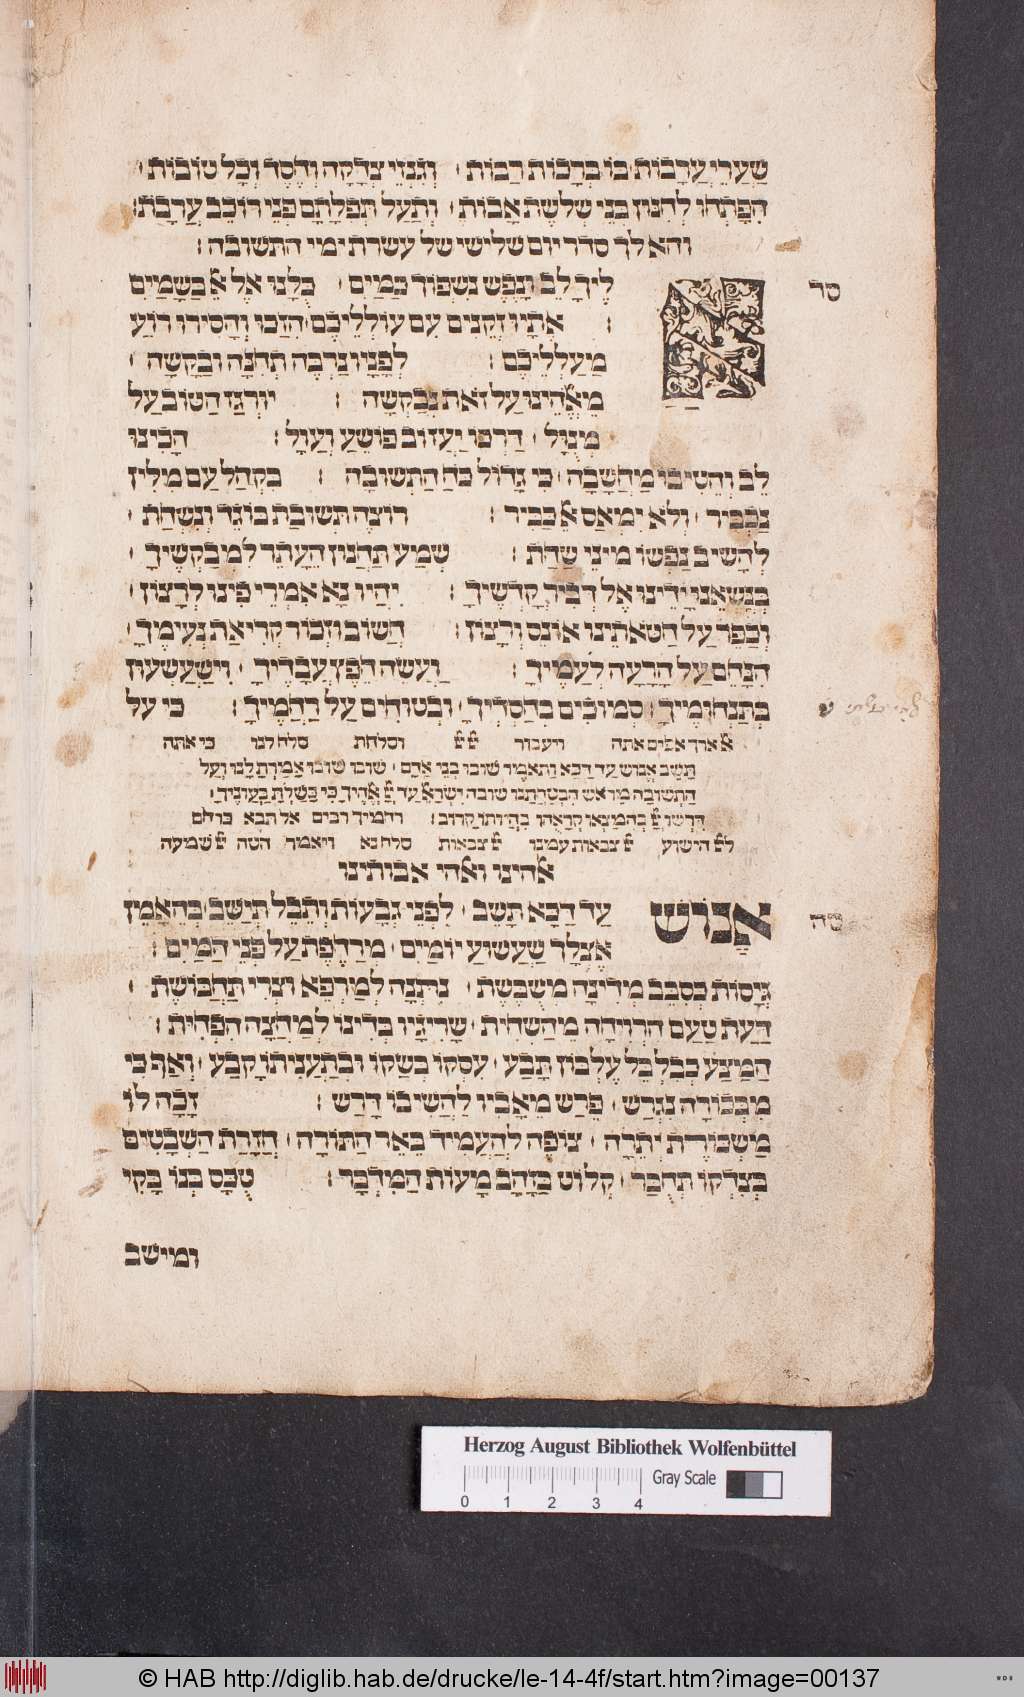 שַׁעֲרֵי עֲרָבוֹת בּוֹ בְּרָכוֹת רַבּוֹת וְגִנְזֵי צְדָקָה וְחֶסֶד וְכָל טוֹבוֹת
הִפָּתְחוּ לְחִנּוּן בְּנֵי שְׁלֹשֶׁת אָבוֹת וְתַעַל תְּפִלָּתָם פְּנֵי רוֹכֵב עֲרָבֹת:
והא לך סדר יום שלישי של עשרת ימי התשובה:
סד
א לֵיךָ לֵב וָנֶפֶשׁ נִשְׁפּוֹךְ כַּמַּיִם כֻּלָּנוּ אֶל אֵ בַשָּׁמַיִם
: אֵתָיוּ זְקֵנִים עִם עוֹלְלֵיכֶם הִזַּכּוּ וְהָסִירוּ רוֹעַ
מַעַלְלֵיכֶם : לְפָנָיו נַרְבֶּה תְחִנָּה וּבַקָּשָׁה
מֵאֱהֵינוּ עַל זֹאת נְבַקְשָׁה : יוֹרְגַז הַטּוֹב עַל
מְנֻוָּל דַּרְכּוֹ יַעֲזוֹב פּוֹשֵׁעַ וְעַוָּל : הָבִינוּ
לֵב וְהֵטִיבוּ מַחֲשָׁבָה כִּי גָדוֹל כֹּחַ הַתְּשׁוּבָה : בִּקְהַל עַם מִלִּין
נַכְבִּיר וְלֹא יִמְאַס אֵ כַּבִּיר : רוֹצֶה תְשׁוּבַת בּוֹגֵד וְנִשְׁחַת
לְהָשִׁיב נַפְשׁוֹ מִינֵי שָׁחַת : שְׁמַע תַּחֲנוּן הֵעָתֵר לִמְבַקְשֶׁיךָ
בְּנָשְׂאֵנוּ יָדֵינוּ אֶל דְּבִיר קָדְשֶׁיךָ : יִהְיוּ נָא אִמְרֵי פִינוּ לְרָצוֹן
וְכַפֵּר עַל חַטֹּאתֵינוּ אוֹנֶס וְרָצוֹן : חֲשׁוֹב וּזְכוֹר קְרִיאַת נְעִימֶיךָ
הִנָּחֵם עַל הָרָעָה לְעַמֶּיךָ : וַעֲשֵׂה חֵפֶץ עֲבָדֶיךָ וִישַׁעְשְׁעוּן
בְּתַנְחוּמֶיךָ סְמוּכִים בַּחֲסָדֶיךָ וּבְטוּחִים עַל רַחֲמֶיךָ : כי על
א ארך אפים אתה ויעבור וסלחת סלח לנו כי אתה
תָּשֵׁב אֱנוֹשׁ עַד דַּכָּא וַתֹּאמֶר שׁוּבוּ בְנֵי אָדָם שׁוּבוּ שׁוּבוּ אָמַרְתָּ לָנוּ וְעַל
הַתְּשׁוּבָה מֵרֹאשׁ הִבְטַחְתָּנוּ שׁוּבָה יִשְׂרָאֵ עַד אֱהֶיךָ כִּי כָשַׁלְתָּ בַּעֲוֹנֶיךָ:
דִּרְשׁוּ בְּהִמָּצְאוֹ קְרָאֻהוּ בִּהְיוֹתוֹ קָרוֹב: רחמיך רבים אל תבא כרחם
לא הישוע צבאות עמינו צבאות סלח נא ויאמר הטה שמעה
אהינו ואהי אבותינו
סה
אֱנוֹשׁ עַד דַּכָּא תָּשֵׁב לִפְנֵי גְבָעוֹת וְתֵבֵל תְּיַשֵּׁב בְּהֵאָמֵץ
אֶצְלָךְ שַׁעֲשׁוּעַ יוֹמַיִם מְרַחֶפֶת עַל פְּנֵי הַמַּיִם :
גָּיסוֹת בִּסְבֹב מְדִינָה מְשֻׁבֶּשֶׁת נִתְּנָה לְמַרְפֵּא וּצְרִי תַּחְבּוֹשֶׁת
דַּעַת טַעַם הַרְוִיחָה מֵהַשְׁחִית שָׂרִיגָיו בְּדִינוֹ לְמַחֲצָה הִפְחִית :
הַמֻּצָּע כְּבָלְבֵּל עֶלְבּוֹן תָּבַע עִסְקוֹ בְּשַׂקּוֹ וּבְתַעֲנִיתוֹ קָבַע וְאַף כִּי
מִבְּכוֹרָה נִגְרַשׁ פֵּרַשׁ מֵאָבִיו לַהֲשִׁיבוֹ דָּרַשׁ : זָכָה לוֹ
מַשְׂכּוֹרֶת יְתֵרָה צוֹפֶה לְהַעֲמִיד בְּאֵר הַתּוֹרָה חֶזְרַת הַשְּׁבָטִים
בְּצִדְקוֹ תְחֻבַּר קְלוּשׁ בַּזָּהָב מָעוֹת הַמִּדְבָּר : טֻכָּס בְּנוֹ בָּקִי
ומישב
Herzog August Bibliothek Wolfenbüttel
0 1 2 3 4 Gray Scale
© HAB http://diglib.hab.de/drucke/le-14-4f/start.htm?image=00137